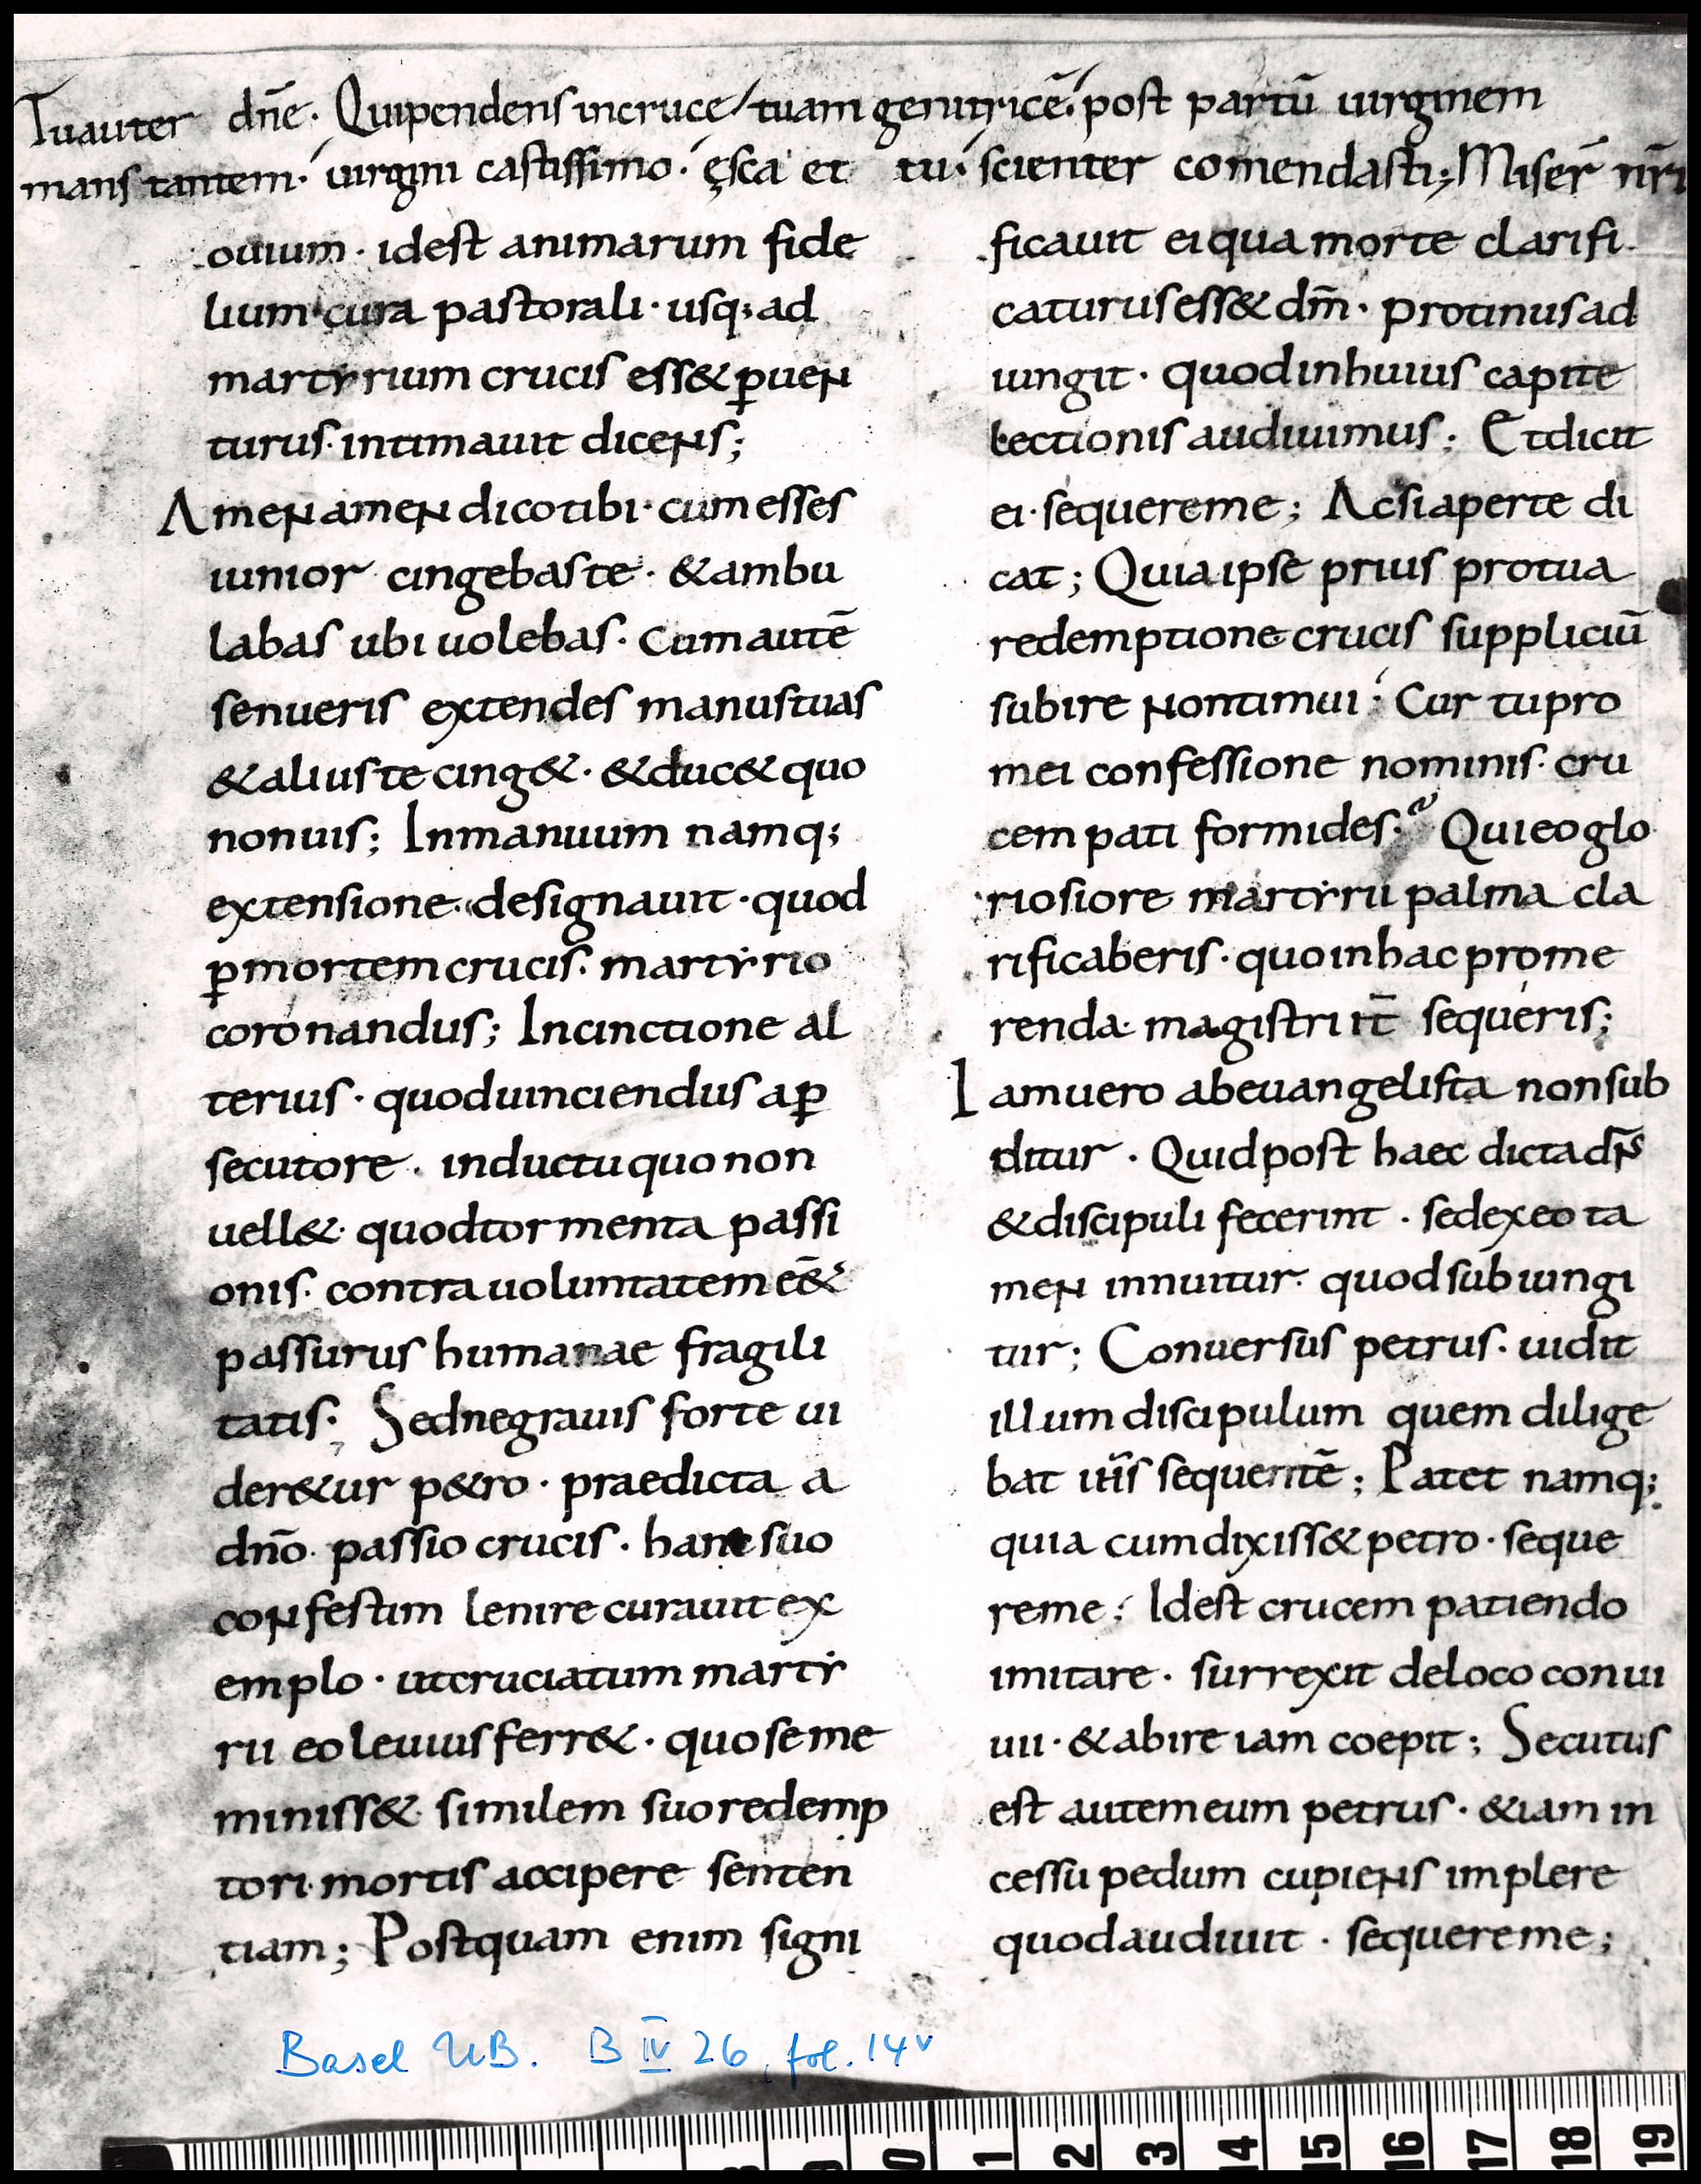 Tuauter dn̄e· Quipendens incruce tuam genitricē· post partū uirginem
mans tantem· uirgini castissimo· ęsca et tu· scienter comendasti; Miser̄ nr̄i
ouium· idest animarum fide
lium cura pastorali· usq; ad
martyrium crucis ess& ꝑuen
turus· intimauit dicens;
Amen amen dico tibi· cum esses
iunior cingebas te· & ambu
labas ubi uolebas· Cum autē
senueris extendes manus tuas
& alius te cing&· & duc& quo
non uis; In manuum namq;
extensione· designauit· quod
ꝑ mortem crucis· martyrio
coronandus; In cinctione al
terius· quod uinciendus a ꝑ
secutore· in ductu quo non
uell&· quod tormenta passi
onis· contra uoluntatem eē&
passurus humanae fragili
tatis· Sed ne grauis forte ui
der&ur p&ro· praedicta a
dn̄o· passio crucis· hanc suo
confestim lenire curauit ex
emplo· ut cruciatum marty
rii eo leuius ferr&· quo se me
miniss& similem suo redemp
tori· mortis accipere senten
tiam; Postquam enim signi
ficauit ei qua morte clarifi
caturus ess& dm̄· protinus ad
iungit· quod in huius capite
lectionis audiuimus; Et dicit
ei· sequere me; Ac si aperte di
cat; Quia ipse prius pro tua
redemptione crucis suppliciū
subire non timui; Cur tu pro
mei confessione nominis· cru
cem pati formides? Qui eo glo
riosiore martyrii palma cla
rificaberis· quo in hac prome
renda· magistri it̄ sequeris;
Iam uero ab euangelista non sub
ditur· Quid post haec dicta dn̄s
& discipuli fecerint· sed ex eo ta
men innuitur· quod subiungi
tur; Conuersus petrus· uidit
illum discipulum quem dilige
bat ih̄s sequentē; Patet namq;
quia cum dixiss& petro· seque
re me; Idest crucem patiendo
imitare· surrexit de loco conui
uii· & abire iam coepit; Secutus
est autem eum petrus· & iam in
cessu pedum cupiens implere
quod audiuit· sequere me;
Basel UB. B IV 26, fol. 14v